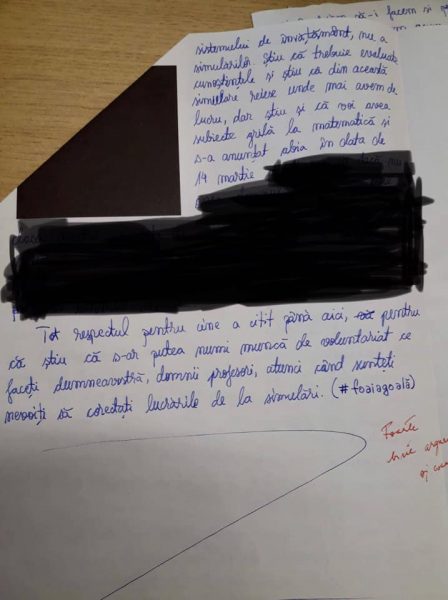 să-i facem și
sistemului de învățământ, nu a
simulărilor. Știu că trebuie evaluate
cunoștințele și știu că din această
simulare reiese unde mai avem de
lucru, dar știu și că voi avea
subiecte grilă la matematică și
s-a anunțat abia în data de
14 martie
Tot respectul pentru cine a citit până aici, pentru
că știu că s-ar putea numi muncă de voluntariat ce
faceți dumneavostră, domnii profesori, atunci când sunteți
nevoiți să corectați lucrările de la simulări. (#foaiagoală)
Foarte
bine
și